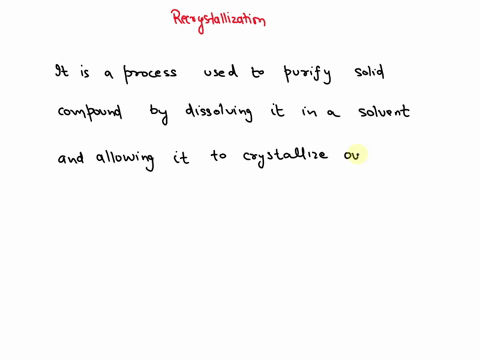 Recrystallization
It is a process used to purify solid
compound by dissolving it in a solvent
and allowing it to crystallize ou